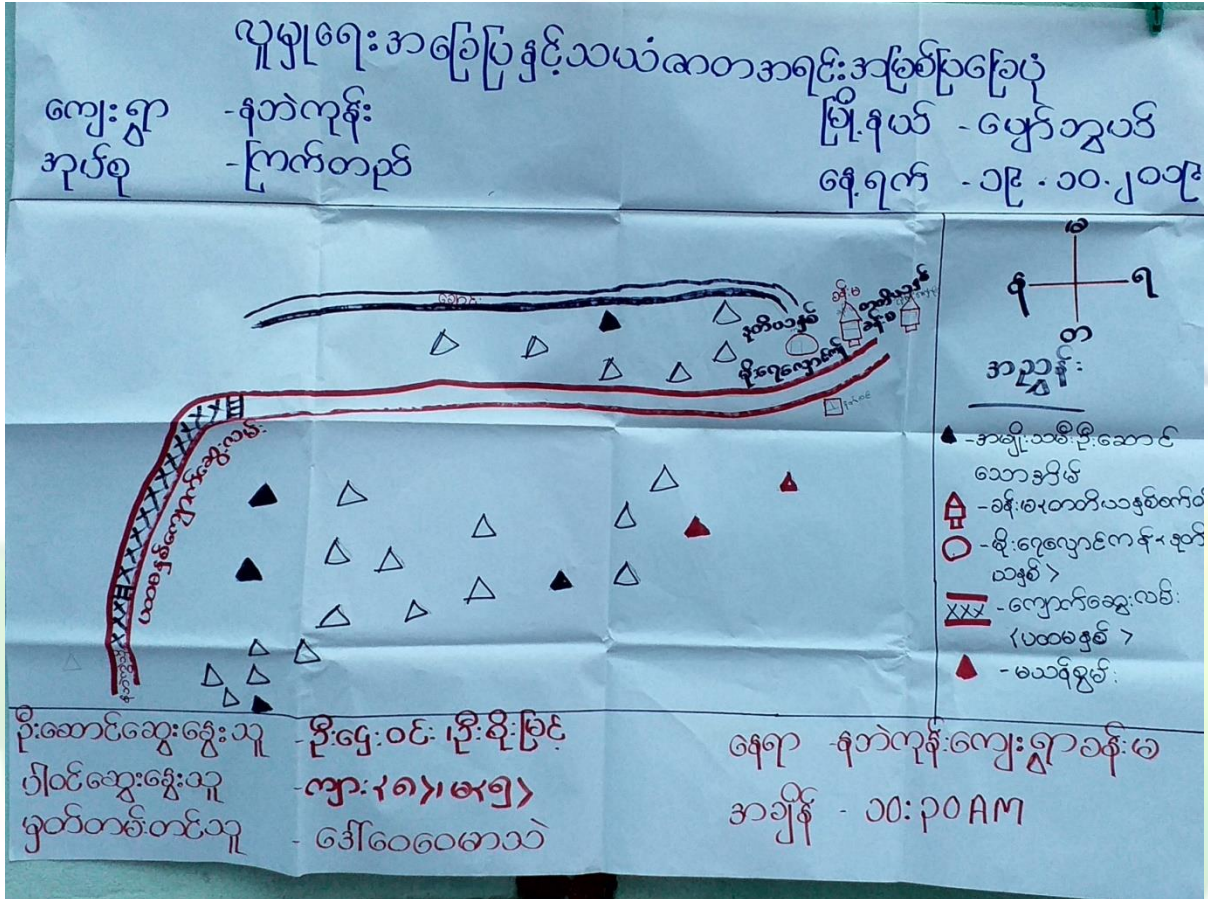 လူမှုရေးအခြေပြနှင့်သယံဇာတအရင်းအမြစ်ပြမြေပုံ
ကျေးရွာ -နဘဲကုန်း
အုပ်စု -ကြက်တညင်
မြို့နယ် - ပျော်ဘွယ်
နေ့ရက် - ၁၉.၁၀.၂၀၁၉
မ
န ရ
တ
အညွှန်း
ချောင်း
ဒုတိယနှစ်
မိုးရေလှောင်ကန်
ခန်းမ
တတိယနှစ်
ခန်းမ
-အမျိုးသမီးဦးဆောင်
သောအိမ်
-ခန်းမ<တတိယနှစ်
-မိုးရေလှောင်ကန်<ဒုတိ
ယနှစ်>
-ကျောက်ဆွေးလမ်း
<ပထမနှစ်>
-မသန်စွမ်း
ဦးဆောင်ဆွေးနွေးသူ -ဦးဌေးဝင်း၊ဦးစိုးမြင့်
ပါဝင်ဆွေးနွေးသူ -ကျား<၈>၊မ<၅>
မှတ်တမ်းတင်သူ - ဒေါ်ဝေဝေမာသဲ
နေရာ -နဘဲကုန်းကျေးရွာခန်းမ
အချိန် - ၁၀:၃၀AM